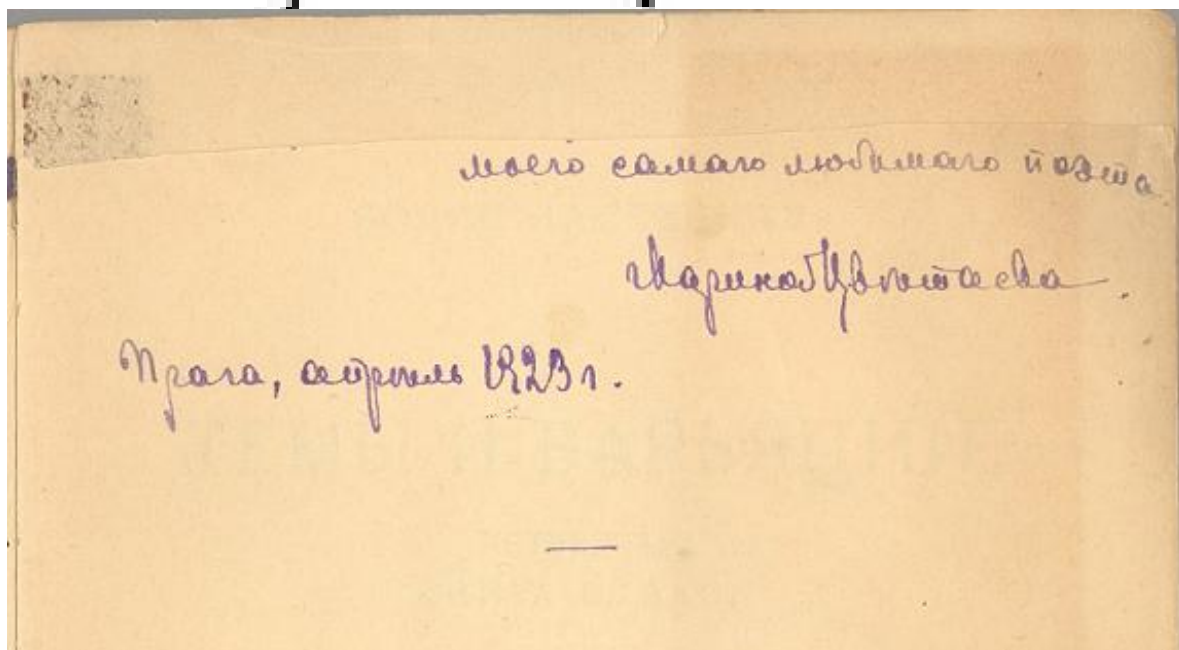 моего самаго любимаго поэта.
Марина Цвѣтаева.
Прага, апрѣль 1923 г.